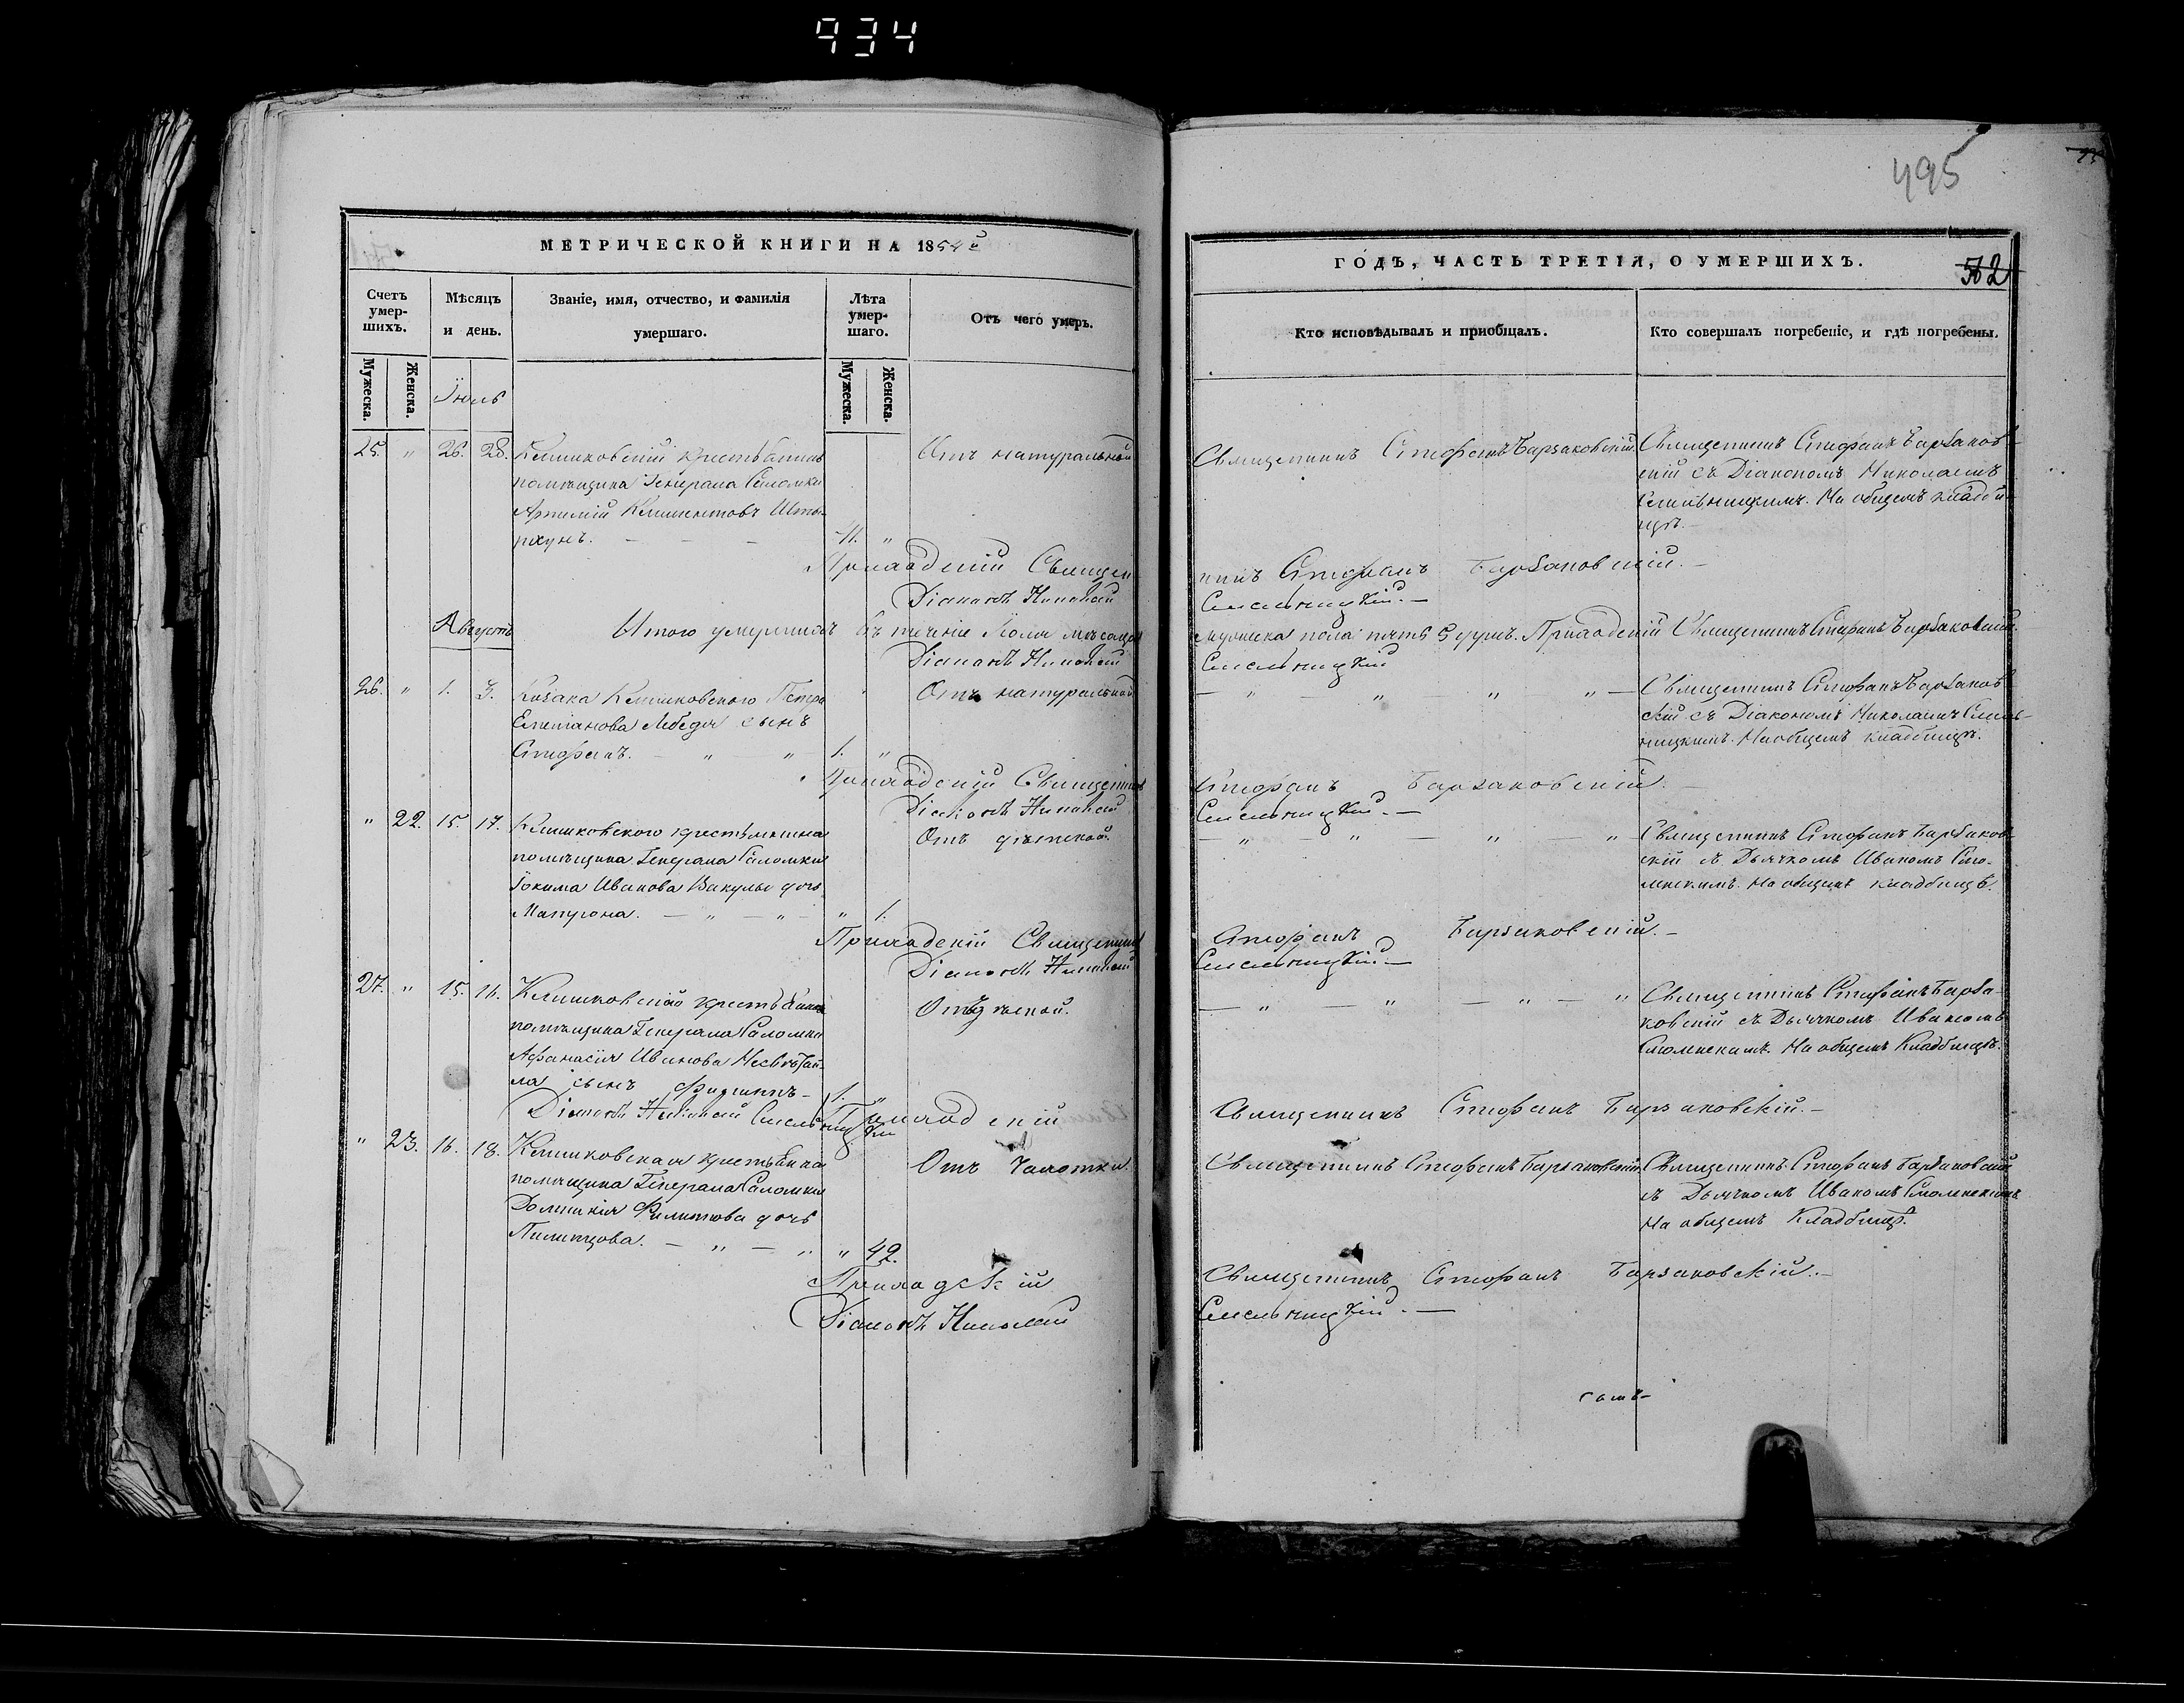 934
495
МЕТРИЧЕСКОЙ КНИГИ НА 1854й
ГОДЪ, ЧАСТЬ ТРЕТІЯ, О УМЕРШИХЪ.
Счетъ умер-
шихъ.
Мѣсяцъ
и день.
Званіе, имя, отчество, и фамилія
умершаго.
Лѣта
умер-
шаго.
Отъ чего умеръ.
Кто исповѣдывалъ и пріобщалъ.
Кто совершалъ погребеніе, и гдѣ погребены.
Мужеска.
Женска.
Мужеска.
Женска.
Іюль
25. " 26. 28. Клишковскій крестьянинъ
помѣщика Генерала Саломки
Артемій Климентовъ
41. "
Отъ натуральной
Священникъ Стефанъ Барзаковскій.
Священникъ Стефанъ Барзаков-
скій съ Діакономъ Николаемъ
На общемъ кладби-
щѣ.
Приходскій Священ
никъ Стефанъ Барзаковскій.
Діаконъ Николай
Августъ
Итого умершихъ въ теченіе Іюля мѣсяца
мужеска пола пять 5 душъ. Приходскій Священникъ Стефанъ Барзаковскій.
Діаконъ Николай
26. " 1. 3. Козака Клишковского Петра
Лебедя сынъ
Стефанъ. — " — " 1. "
Отъ натуральной
— " " " " —
Священникъ Стефанъ Барзаков
скій съ Діакономъ Николаемъ
На общемъ кладбищѣ.
Приходскій Священникъ
Стефанъ Барзаковскій.
Діаконъ Николай
" 22. 15. 17. Клишковского крестьянина
помѣщика Генерала Саломки
Іокима Иванова Вакулы дочь
Матрона. — " — " — " 1.
Отъ дѣтской.
— " — " — " — " —
Священникъ Стефанъ Барзаков
скій съ Дьячкомъ Иваномъ Смо-
ленскимъ. На общемъ кладбищѣ.
Приходскій Священникъ
Стефанъ Барзаковскій.—
Діаконъ Николай
27. " 15. 16. Клишковскаго крестьянина
помѣщика Генерала Саломки
Афанасія Иванова
сынъ Филиппъ— 1. "
Отъ дѣтской.
— " — " — " — "
Священникъ Стефанъ Барза-
ковскій съ Дьячкомъ Иваномъ
Смоленскимъ. На общемъ Кладбищѣ.
Приходскій
Священникъ Стефанъ Барзаковскій.—
Діаконъ Николай
" 23. 16. 18. Клишковская крестьянка
помѣщика Генерала Саломки
Домникія Филипова дочь
— " — " " 42.
Отъ чахотки
Священникъ Стефанъ Барзаковскій.
Священникъ Стефанъ Барзаковскій
съ Дьячкомъ Иваномъ Смоленскимъ
На общемъ Кладбищѣ.
Приходскій
Священникъ Стефанъ Барзаковскій.—
Діаконъ Николай